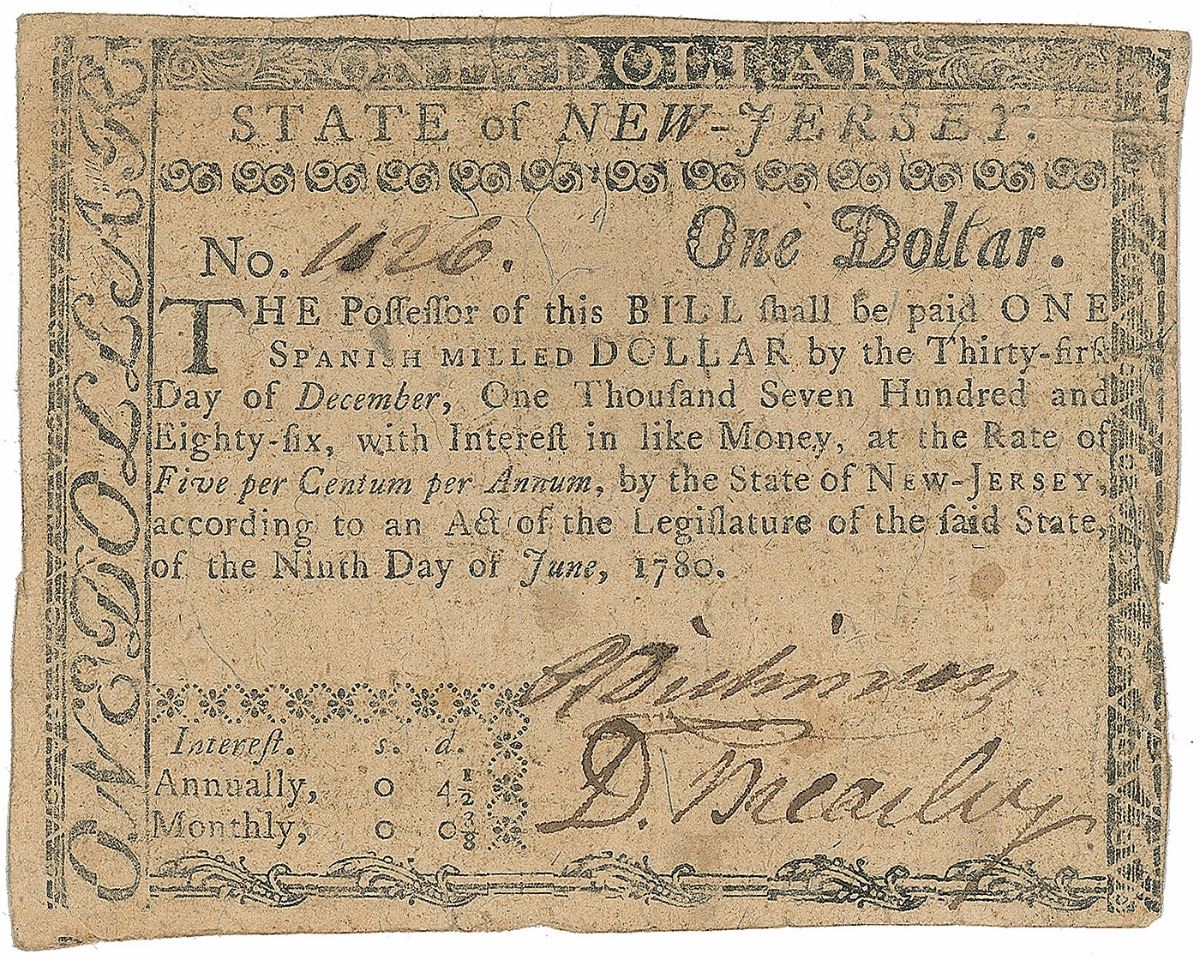 ONE DOLLAR
STATE of NEW-JERSEY.
No. 1026. One Dollar.
THE Poſſeſſor of this BILL ſhall be paid ONE
SPANISH MILLED DOLLAR by the Thirty-firſt
Day of December, One Thouſand Seven Hundred and
Eighty-ſix, with Intereſt in like Money, at the Rate of
Five per Centum per Annum, by the State of NEW-JERSEY,
according to an Act of the Legiſlature of the ſaid State,
of the Ninth Day of June, 1780.
Dickinson
D. Brearley
Intereſt. s. d.
Annually, 0 4½
Monthly, 0 0⅜
ONE DOLLAR